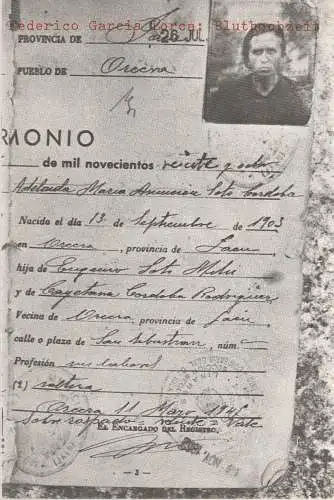 Federico García Lorca: Bluthochzeit
PROVINCIA DE
26 JUL.
PUEBLO DE Orcera
RMONIO
de mil novecientos veinte y ocho
Adelaida Maria Asuncion Soto Cordoba
Nacida el día 13 de Septiembre de 1903
en Orcera, provincia de Jaen
hija de Eugenio Soto
y de Cayetana Cordoba Rodriguez
Vecina de Orcera, provincia de Jaen
calle o plaza de San Sebastian, núm.
Profesión sus labores
(2) soltera
Orcera 11 Mayo
Sobre raspado = veinte = Vale
EL ENCARGADO DEL REGISTRO,
— 3 —